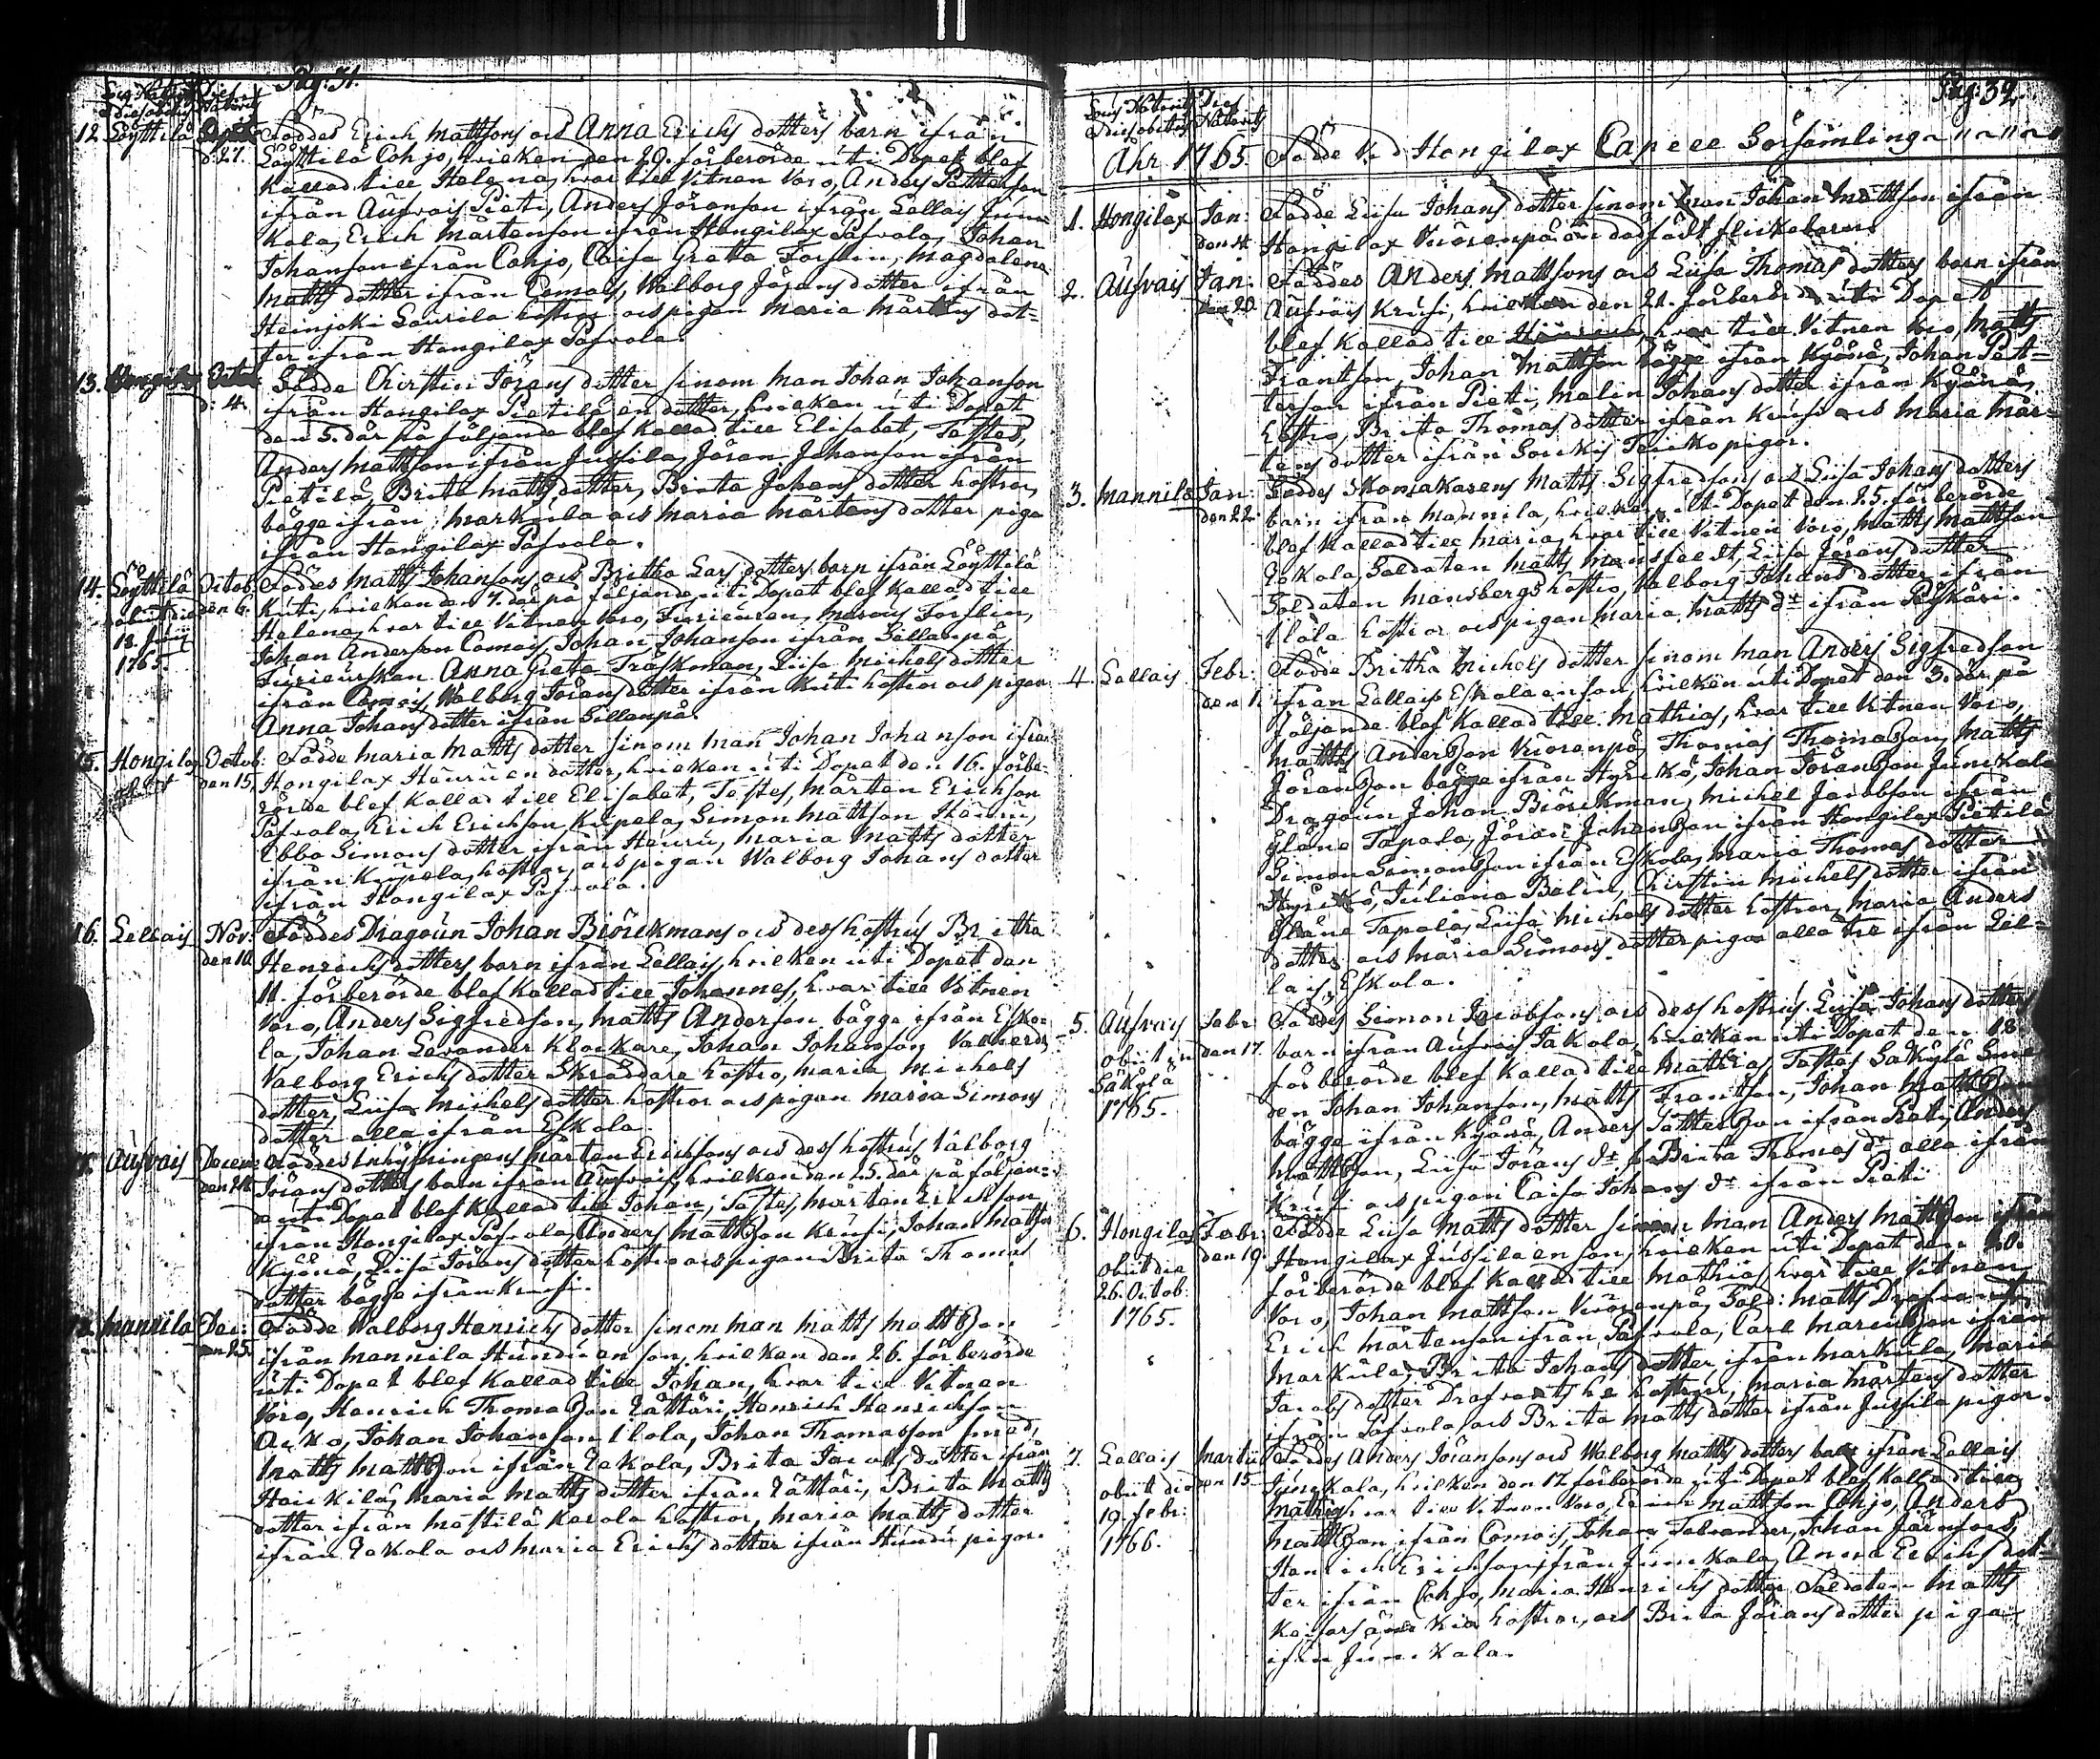 Pag: 31.
12. Löyttilä Sept: Föddes Erich Mattsons och Anna Erichs dotters barn ifrån
d. 27. Löyttilä Cohjo, hvilken den 29. förberörde uti Dopet blef
Kallad till Helena, hvar till Vitnen Voro, Anders Pättersson
ifrån Aufvais Pieti, Anders Jöranson ifrån Lellais Juni
kala, Erich Mårtenson ifrån Hongilax Påfvola, Johan
Johanson ifrån Cohjo, Caisa Greta Forslin, Magdalena
Matts dotter ifrån Comois, Walborg Jörans dotter ifrån
Heinjoki Laurila hustror och pigan Maria Mårtens dot=
ter ifrån Hongilax Påfvola.
13. Hongilax Octob: Födde Chirstin Jörans dotter sinom Man Johan Johanson
d: 4. ifrån Hongilax Pietilä en dotter, hvilken uti Dopet
den 5. där på följande blef kallad till Elisabet, Testes,
Anders Mattson ifrån Jussila, Jöran Johanson ifrån
Pietilä, Brita Matts dotter, Brita Johans dotter hustror,
bägge ifrån Markula och Maria Mårtens dotter piga
ifrån Hongilax Påfvola.
14. Löyttilä Octob: Föddes Matts Johansons och Britha Lars dotters barn ifrån Löyttilä
obiit die den 6. Kuti, hvilken den 7. där på följande uti Dopet blef Kallad till
12. Junij Helena, hvar till Vitnen Voro, Furieuren, Forslin,
1765. Johan Anderson Comois, Johan Johanson ifrån Sillanpä,
Furieurskan Anna Greta Träskman, Liisa Michels dotter
ifrån Comois, Walborg Jörans dotter ifrån Kuti hustror och pigan
Anna Johans dotter ifrån Sillanpä.
15. Hongilax Octob: Födde Maria Matts dotter sinom Man Johan Johanson ifrån
den 15. Hongilax Heuru en dotter, hvilken uti Dopet den 16. förbe=
rörde blef Kallad till Elisabet, Testes, Mårten Erichson
Påfvola, Erich Erichson Knpela, Simon Mattson Heuru,
Ebba Simons dotter ifrån Heuru, Maria Matts dotter
ifrån hustror, och pigan Walborg Johans dotter
ifrån Hongilax Påfvola.
16. Lellais Nov: Föddes Dragoun Johan Biörckmans och dess hustrus Britha
den 10. Henrichs dotters barn ifrån Lellais, hvilken uti Dopet den
11. förberörde blef Kallad till Johannes, hvar till Vitnen
Voro, Anders Sigfredson, Matts Anderson bägge ifrån Esko=
la, Johan Levander Klockare, Johan Johanson
Valborg Erichs dotter Skräddare hustro, Maria Michels
dotter, Liisa Michels dotter hustror och pigan Maria Simons
dotter alla ifrån Eskola.
Aufvais Decem: Föddes Inhysningens Mårten Erichsons och dess hustrus Valborg
den 24. Jörans dotters barn ifrån Aufvais, hvilken den 25. där på följan=
de uti Dopet blef Kallad till Johan, Testes, Mårten Erichson
ifrån Hongilax Påfvola, Anders Mattzon Krusi, Johan Mattson
Kyönä, Liisa Jörans dotter hustro och pigan Brita Thomas
dotter bägge ifrån Krusi.
Mannila Dec: Födde Walborg Henrichs dotter sinom Man Matts Mattzon
den 25. ifrån Mannila Hundi en son, hvilken den 26. förberörde
uti Dopet blef Kallad till Johan, hvar till Vitnen
Voro, Henrich Thomazon Lättäri, Henrich Henrichson
Acko, Johan Johanson Ilola, Johan Thomasson smed,
Matts Mattzon ifrån Eskola, Brita Jacobs dotter ifrån
Heickilä, Maria Matts dotter ifrån Lättäri, Brita Matts
dotter ifrån Mästilä Karola hustror, Maria Matts dotter
ifrån Eskola och Maria Erichs dotter ifrån Hundi pigor.
Pag: 32.
Locus Nativit: Dies
& dies obitus Nativit:
Åhr 1765. Födde Vid Hongilax Capell Församling
1. Hongilax Jan: Födde Liisa Johans dotter sinom Man Johan Mattson ifrån
den 4. Hongilax Vuorenpä en dödfödt flickebarn.
2. Aufvais Jan: Föddes Anders Mattsons och Liisa Thomas dotters barn ifrån
den 20. Aufvais Krusi, hvilken den 21. förberörde uti Dopet
blef Kallad till Henrich, hvar till Vitnen Voro, Matts
Frantson, Johan Mattson bägge ifrån Kyönä, Johan Pät=
terson ifrån Pieti, Malin Johans dotter ifrån Kyönä,
hustro, Brita Thomas dotter ifrån Krusi och Maria Mår=
tens dotter ifrån Sorkis pigor.
3. Mannila Jan: Föddes Skomakarens Matts Sigfredsons och Liisa Johans dotters
den 22. barn ifrån Mannila, hvilken uti Dopet den 25. förberörde
blef Kallad till Maria, hvar till Vitnen Voro, Matts Mattson
Eskola, Soldaten Matts Mansfeldt, Liisa Jörans dotter
Soldaten Mansbergs hustro, Valborg Johans dotter ifrån
Ilola hustror och pigan Maria Matts dr ifrån
4. Lellais Febr: Födde Britha Michels dotter sinom Man Anders Sigfredson
den 1. ifrån Lellais Eskola en son, hvilken uti Dopet den 3. där på
följande blef Kallad till Mathias, hvar till Vitnen Voro,
Matts Anderzon Vuorenpä, Thomas Thomazon, Matts
Jöranzon bägge ifrån Hyrickö, Johan Jöranzon Junikala
Dragoun Johan Biörckman, Michel Jacobson ifrån
Yläne Tapala, Jöran Johanzon ifrån Hongilax Pietilä
Simon Simonzon ifrån Eskola, Maria Thomas dotter
Hyrickö, Juliana Balin, Chirstin Michels dotter ifrån
Yläne Tapala, Liisa Michels dotter hustror, Maria Anders
dotter och Maria Simons dotter pigor alla tre ifrån Lel=
lais, Eskola.
5. Aufvais Febr: Föddes Simon Jacobsons och dess hustrus Liisa Johans dotters
obiit in den 17. barn ifrån Aufvais Jakola, hvilken uti Dopet den 18
Säkylä förberörde blef Kallad till Mathias, Testes Säkylä Sme=
1765. den Johan Johanson, Matts Frantson, Johan Mattzon
bägge ifrån Kyönä, Anders Pätterzon ifrån Pieti, Anders
Mattzon, Liisa Jörans dr & Brita Thomas dr alla ifrån
Krusi och pigan Caisa Johans dr ifrån Pieti
6. Hongilax Febr: Födde Liisa Matts dotter sinom Man Anders Mattzon ifrån
obiit die den 19. Hongilax Jussila en son, hvilken uti Dopet den 20.
26. Octob: förberörde blef Kallad till Mathias, hvar till Vitnen
1765. Voro, Johan Mattson Vuorenpä, Sold: Matts
Erich Mårtenson ifrån Påfvola, Carl Marcuzon ifrån
Markula, Brita Johans dotter ifrån Markula, Maria
Jacobs dotter hustrur, Maria Mårtens dotter
ifrån Påfvola, och Brita Matts dotter ifrån Jussila pigor.
7. Lellais Martii Föddes Anders Jöransons och Walborg Matts dotters barn ifrån Lellais
obiit die den 15. Junikala, hvilken den 17. förberörde uti Dopet blef Kallad till
19. Febr: Mathias, hvar till Vitnen Voro, Erich Mattson Cohjo, Anders
1766. Mattzon ifrån Comois, Johan, Johan
Henrich Erichson ifrån Junikala, Anna Erichs dot=
ter ifrån Cohjo, Maria Henrichs dotter, Soldaten Matts
hustror, och Brita Jörans dotter piga
ifrån Junikala.